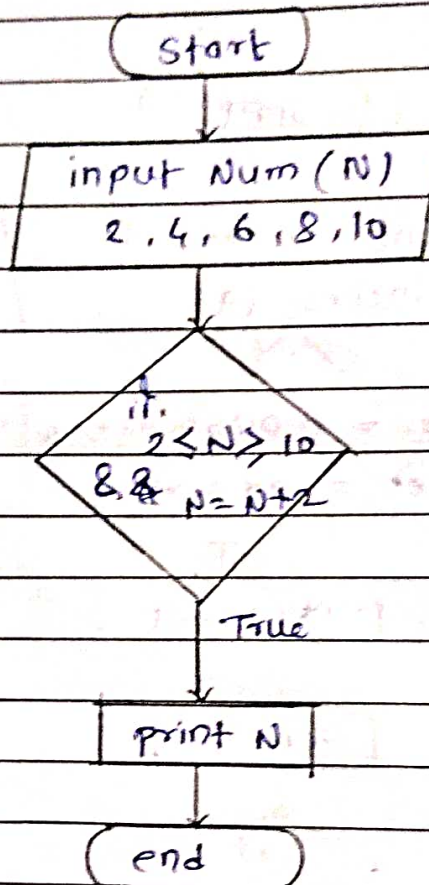 Start
input Num (N)
2, 4, 6, 8, 10
if
2 ≤ N ≥ 10
&& N = N+2
True
print N
end